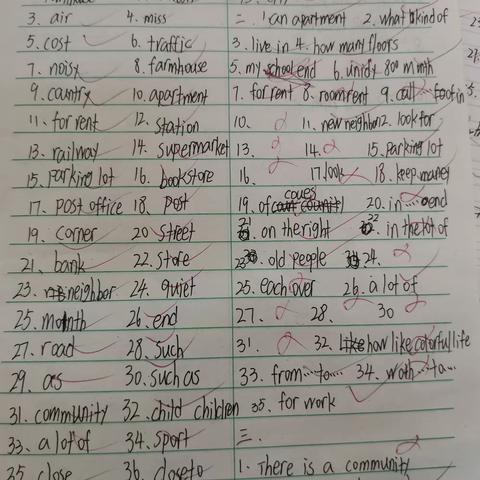 3. air
4. miss
5. cost
6. traffic
7. noisy
8. farmhouse
9. country
10. apartment
11. for rent
12. station
13. railway
14. supermarket
15. parking lot
16. bookstore
17. post office
18. post
19. corner
20 street
21. bank
22. store
23. neighbor
24. quiet
25. month
26. end
27. road
28. such
29. as
30. such as
31. community
32. child children
33. a lot of
34. sport
35. close
36. close to
二. 1 an apartment 2. what kind of
3. live in 4. how many floors
5. my end 6.
7. for rent 8. room rent 9. call in
10. 11. new neighbor 12. look for
13. 14. 15. parking lot
16. 17. look 18. keep money
19. of 20. in end
21. on the right 22. in the of
23. old people 24.
25. each over 26. a lot of
27. 28. 30
31. 32. how like colorful life
33. from...to... 34. to...
35. for work
三.
1. There is a community